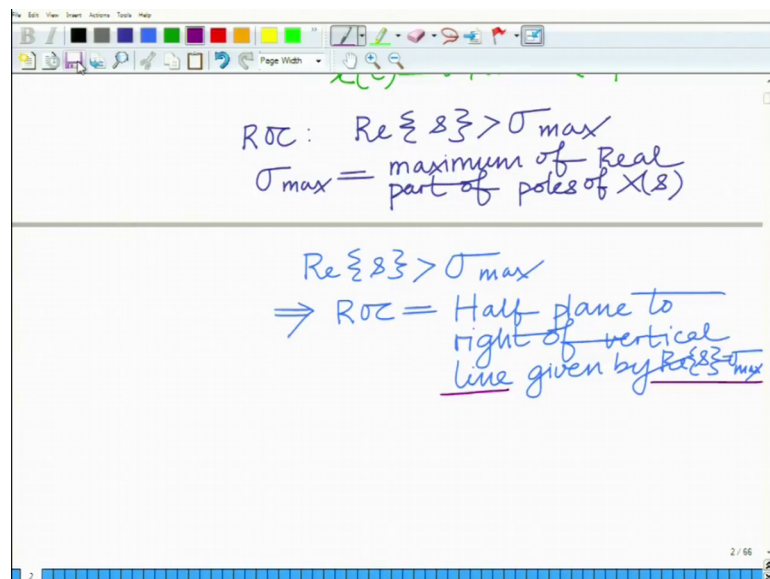 File Edit View Insert Actions Tools Help
B I
Page Width
ROC: Re{s} > σmax
σmax = maximum of Real
part of poles of X(s)
Re{s} > σmax
⇒ ROC = Half plane to
right of vertical
line given by Re{s}=σmax
2 / 66
2